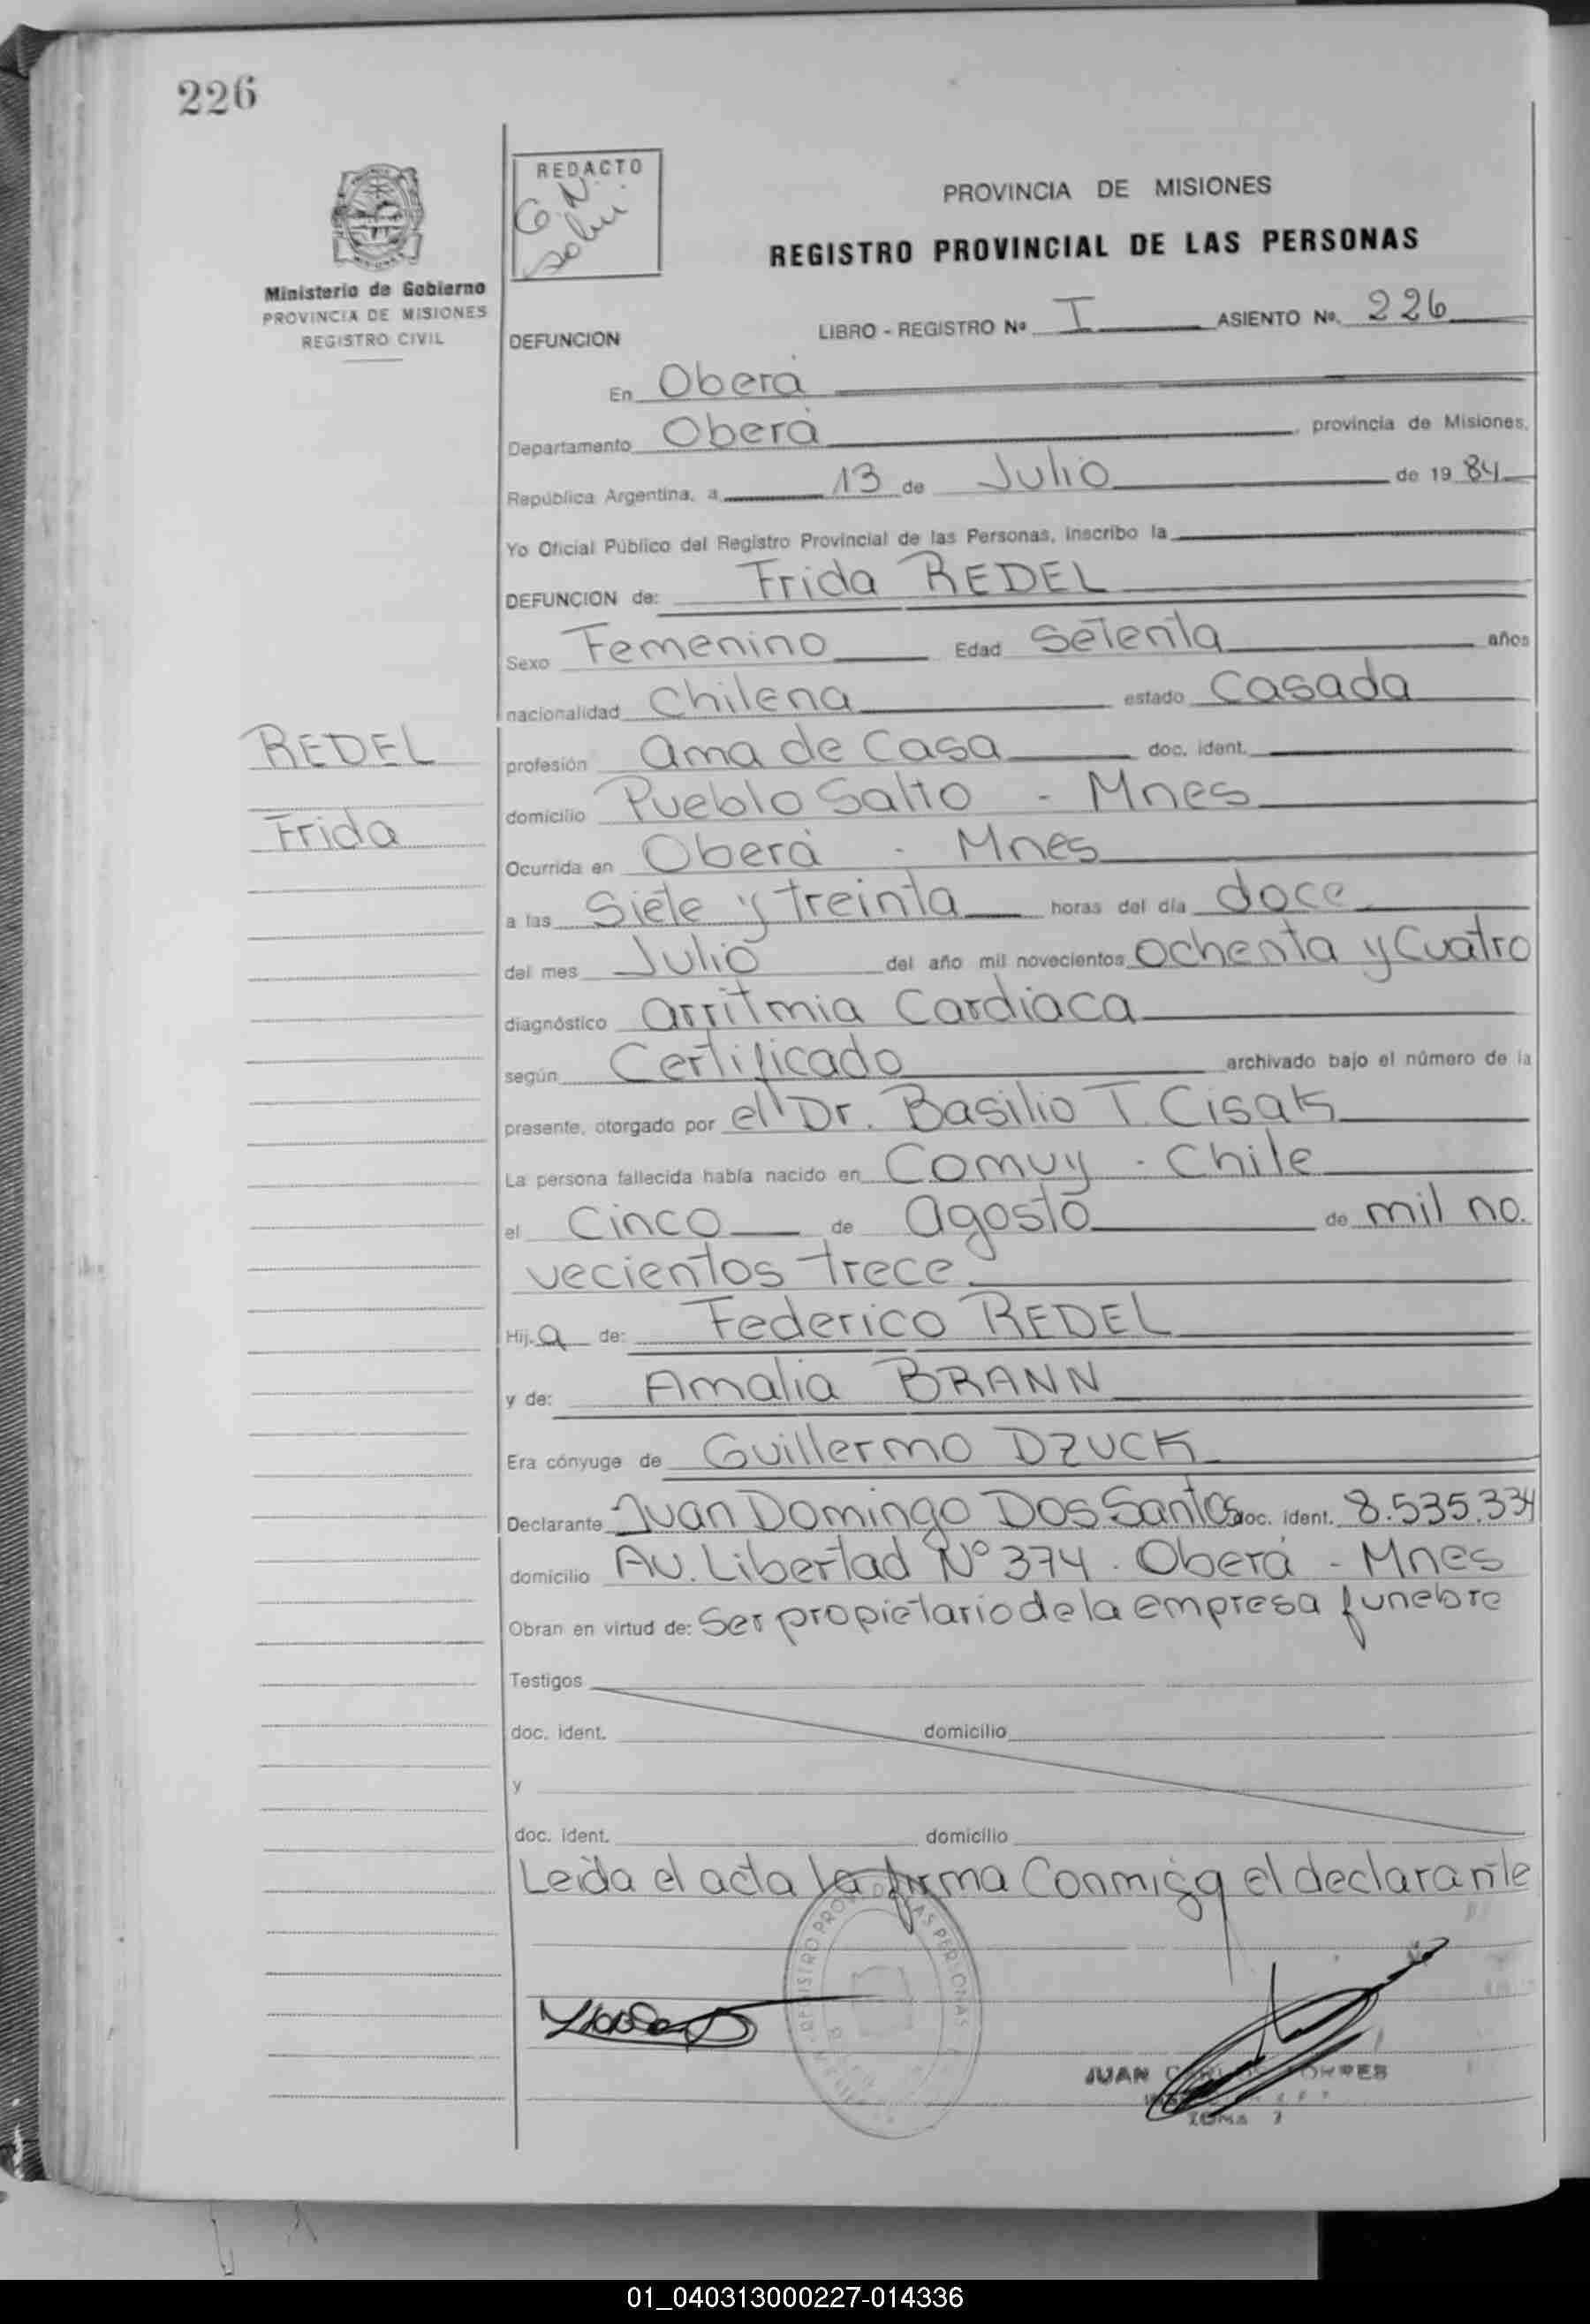 226
REDACTO
G.N.
Ministerio de Gobierno
PROVINCIA DE MISIONES
REGISTRO CIVIL
PROVINCIA DE MISIONES
REGISTRO PROVINCIAL DE LAS PERSONAS
LIBRO - REGISTRO Nº I ASIENTO Nº. 226
DEFUNCION
En Oberá
Departamento Oberá, provincia de Misiones,
República Argentina, a 13 de Julio de 19 84
Yo Oficial Público del Registro Provincial de las Personas, inscribo la
DEFUNCION de: Frida REDEL
Sexo Femenino Edad Setenta años
nacionalidad Chilena estado Casada
REDEL
Frida
profesión ama de Casa doc. ident.
domicilio Pueblo Salto - Mnes
Ocurrida en Oberá - Mnes
a las Siete y treinta horas del día doce
del mes Julio del año mil novecientos Ochenta y Cuatro
diagnóstico arritmia Cardiaca
según Certificado archivado bajo el número de la
presente, otorgado por el Dr. Basilio T. Cisak
La persona fallecida había nacido en Comuy - Chile
el Cinco de agosto de mil no.
vecientos trece
Hij a de: Federico REDEL
y de: Amalia BRANN
Era cónyuge de Guillermo DZUCK
Declarante Juan Domingo Dos Santos doc. ident. 8.535.334
domicilio Av. Libertad Nº 374 - Oberá - Mnes
Obran en virtud de: Ser propietario de la empresa funebre
Testigos
doc. ident. domicilio
y
doc. ident. domicilio
Leida el acta la firma Conmigo el declarante
REGISTRO PROV LAS PERSONAS
JUAN TORRES
ZONA
01_040313000227-014336